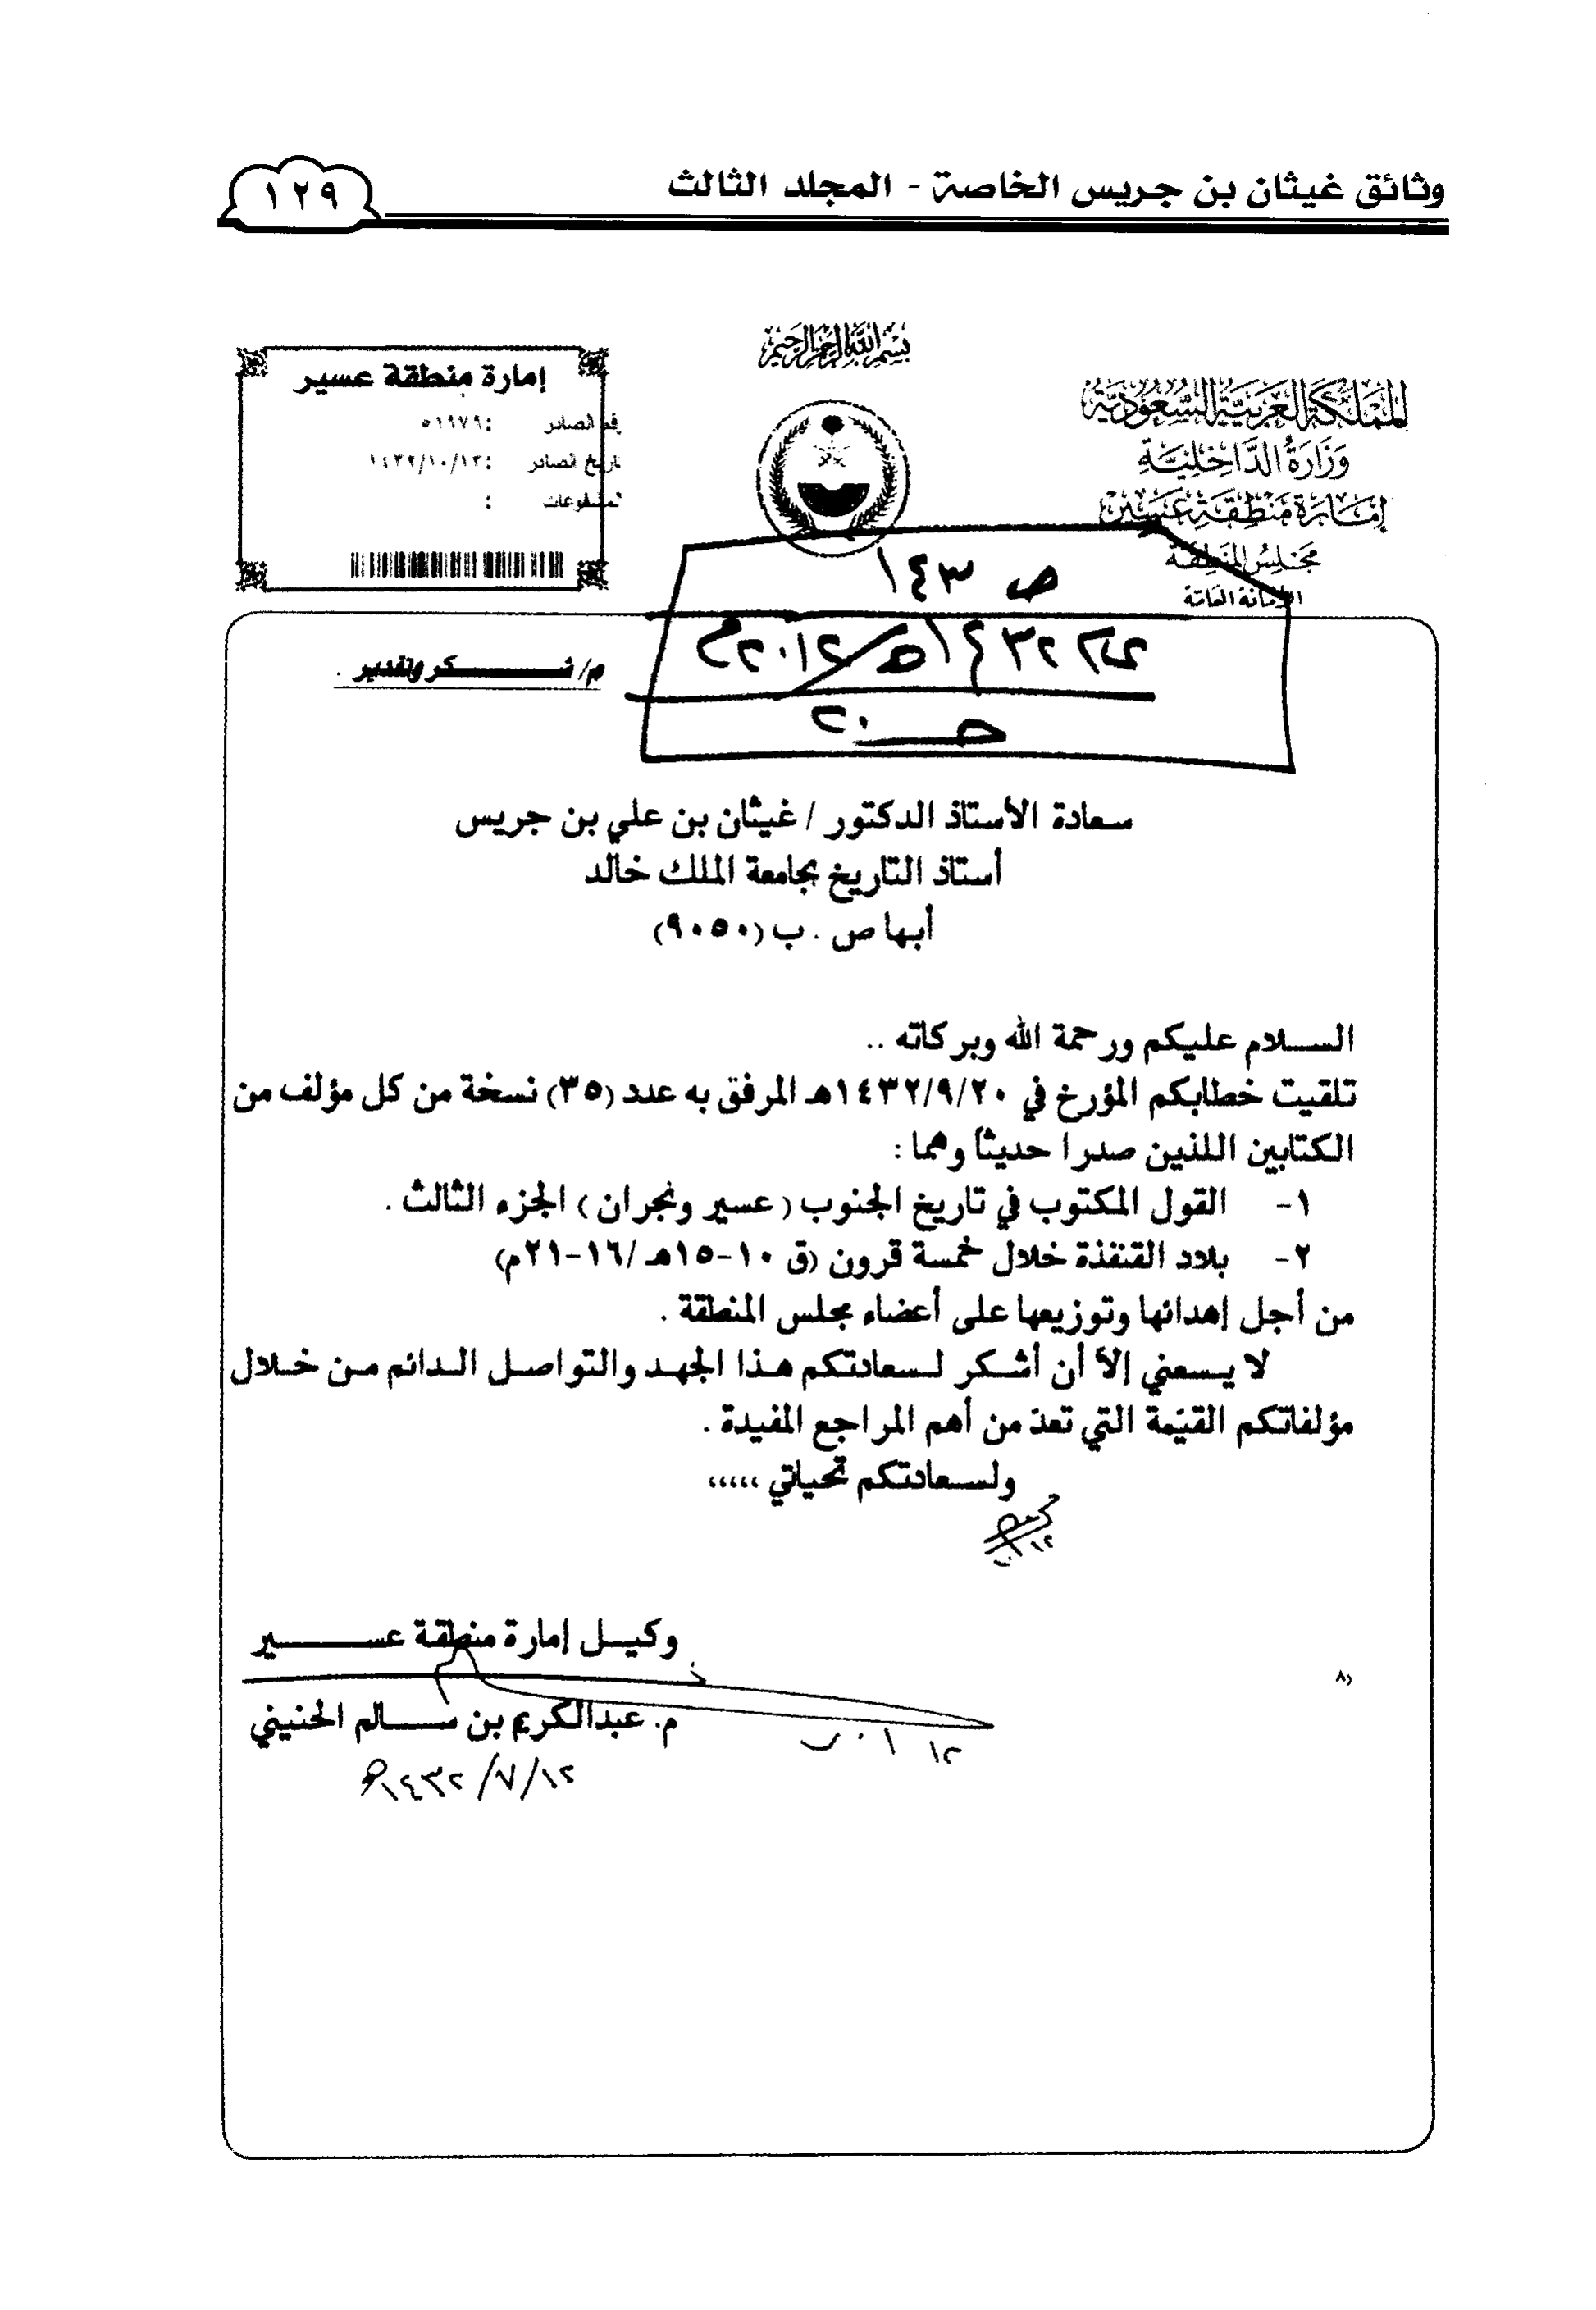 وثائق غيثان بن جريس الخاصة - المجلد الثالث
١٢٩
بسم الله الرحمن الرحيم
المملكة العربية السعودية
وزارة الداخلية
إمارة منطقة عسير
مجلس المنطقة
الأمانة العامة
إمارة منطقة عسير
رقم الصادر : ٥١٩٧٩
تاريخ الصادر : ١٤٣٢/١٠/١٣
المشفوعات :
ص ١٤٣
١٤٣٢هـ/٢٠١٢م
حـ ٢٠
م/ شـــــكر وتقدير .
سعادة الأستاذ الدكتور / غيثان بن علي بن جريس
أستاذ التاريخ بجامعة الملك خالد
أبها ص . ب (٩٠٥٠)
السلام عليكم ورحمة الله وبركاته ..
تلقيت خطابكم المؤرخ في ١٤٣٢/٩/٢٠هـ المرفق به عدد (٣٥) نسخة من كل مؤلف من
الكتابين اللذين صدرا حديثاً وهما :
١- القول المكتوب في تاريخ الجنوب ( عسير ونجران ) الجزء الثالث .
٢- بلاد القنفذة خلال خمسة قرون (ق ١٠-١٥هـ /١٦-٢١م)
من أجل إهدائها وتوزيعها على أعضاء مجلس المنطقة .
لا يسعني إلاّ أن أشكر لسعادتكم هذا الجهد والتواصل الدائم من خلال
مؤلفاتكم القيّمة التي تعدّ من أهم المراجع المفيدة .
ولسعادتكم تحياتي ،،،،،
وكيل إمارة منطقة عســـــير
م. عبدالكريم بن ســـالم الحنيني